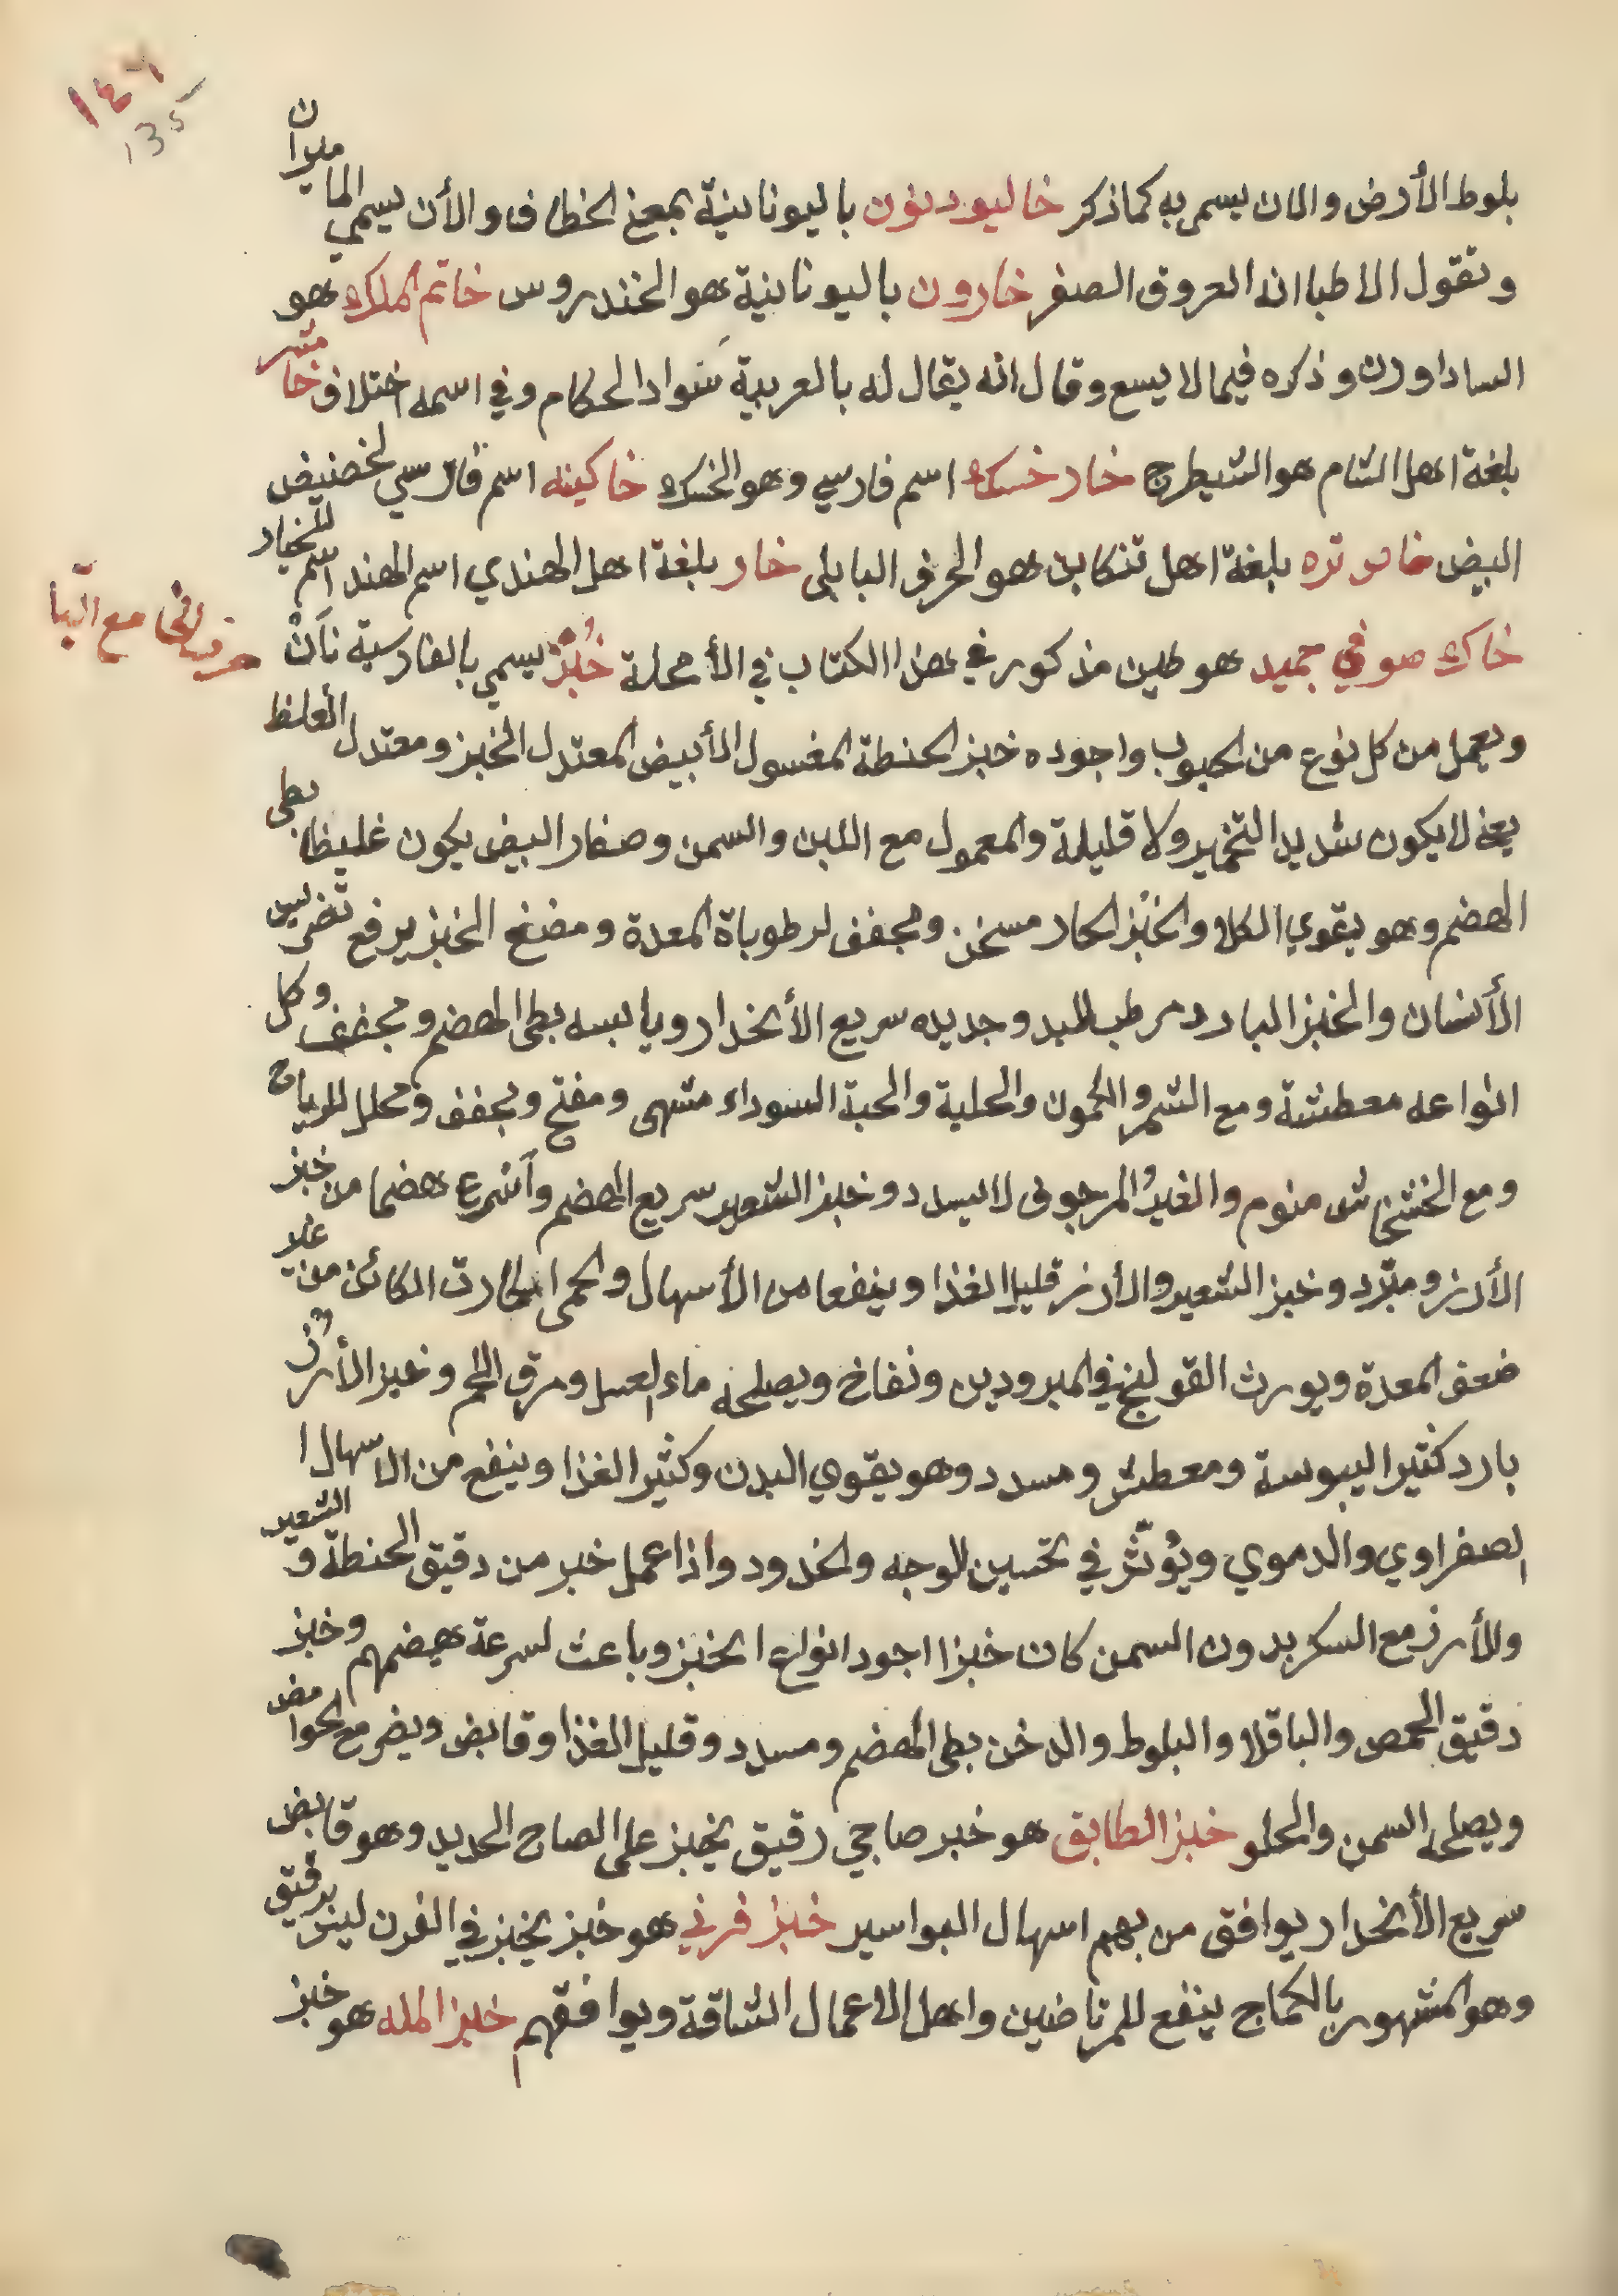 ١٤٦
135
بلوط الأرض والان يسمى به كما ذكر خاليودنون باليونانية بمعنى الخطاف والأن يسمي الماميران
وتقول الاطبا انه العروق الصفر خارون باليونانية هو الخندروس خاتم الملك هو
الساداوران وذكره فيما لا يسع وقال انه يقال له بالعربية سواد الحكام وفي اسمه اختلاف خامشر
بلغة اهل الشام هو الشيطرج خار خسك اسم فارسي وهو الخسك خاكينه اسم فارسي لخصنيض
البيض تره بلغة اهل تنكابن هو الحرف البابلى خار بلغة اهل الهندي اسم الهند اسم للخيار
خاك صوفي جميد هو طين مذكور في هذا الكتاب في الأمحلة خُبْزْ يسمي بالفارسية نَانْ
حرف الخا مع البّا
ويعمل من كل نوع من الحبوب واجوده خبز الحنطة المغسول الأبيض المعتدل الخبز ومعتدل الغلظ
يعني لا يكون شديد التخمير ولا قليلة والمعمول مع اللبن والسمن وصفار البيض يكون غليظا بطى
الهضم وهو يقوي الكلا والخبز الحار مسخن ومجفف لرطوباة المعدة ومضغ الخبز يرفع تضريس
الأسنان والخبز البارد مرطب للبد وجديده سريع الأنحدار ويابسه بطى الهضم ومجفف وكل
انواعه معطشة ومع الشمر والكمون والحلبة والحبة السوداء مشهى ومفتح ومجفف ومحلل للرياح
ومع الخشخاش منوم والغير المرجوق لا ليسدد وخبز الشعير سريع الهضم وأسرع هضما من خبز
الأرز ومبرّد وخبز الشعير والأرز قليل الغذا وينفعا من الأسهال والحمى الحارت الكائن من غير
ضعف المعدة ويورث القولنج في المبرودين ونفاخ ويصلحه ماء العسل ومرق اللحم وخبز الأرز
بارد كثير اليبوسة ومعطش ومسدد وهو يقوي البدن وكثير الغذا وينفع من الاسهال ا
لصفراوي والدموي ويُوثّر في تحسين الوجه والخدود واذا عمل خبر من دقيق الحنطة و الشعير
والأرز مع السكر بدون السمن كان خبزا اجود انواع الخبز وباعث لسرعة هيضمهم وخبز
دقيق الحمص والباقلا والبلوط والدخن بطى الهضم ومسدد وقليل الغذا وقابض ويضر مع الحوامض
ويصلحه السمن والحلو خبز الطابق هو خبر صاجي رقيق يخبز على الصاج الحديد وهو قابض
سريع الأنحدار يوافق من بهم اسهال البواسير خبز فرني هو خبز يخبز في الفرن ليز برقيق
وهو المشهور بالكماج ينفع للمرتاضين واهل الاعمال الشاقة ويوافقهم خبز المله هو خبز